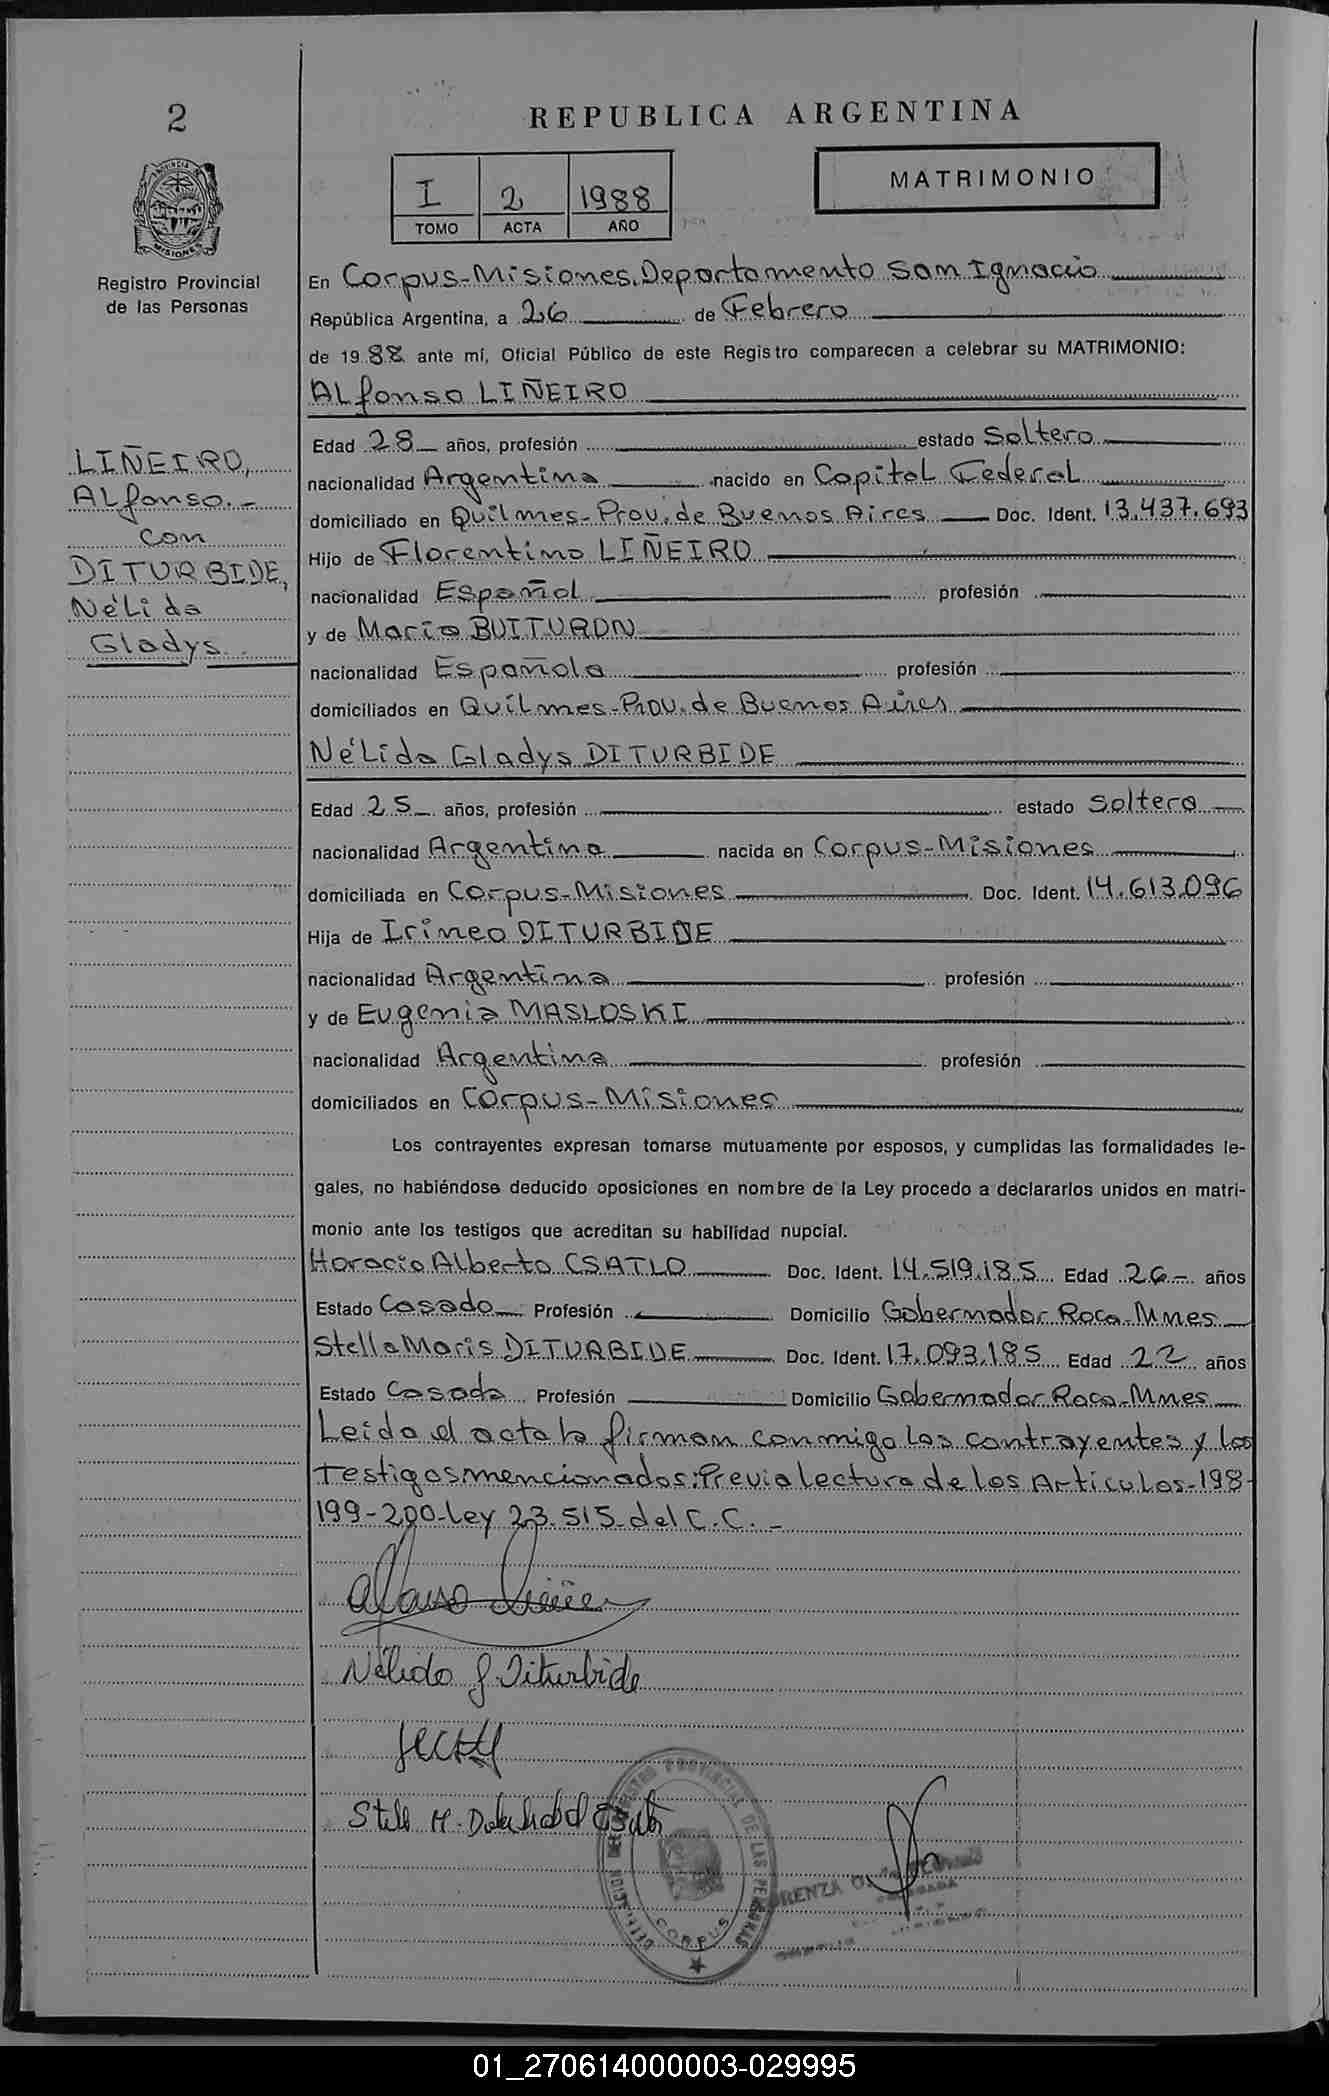 2
REPUBLICA ARGENTINA
PROVINCIA
MISIONES
I 2 1988
TOMO ACTA AÑO
MATRIMONIO
Registro Provincial
de las Personas
En Corpus-Misiones, Departamento San Ignacio
República Argentina, a 26 de Febrero
de 1988 ante mí, Oficial Público de este Registro comparecen a celebrar su MATRIMONIO:
ALfonso LIÑEIRO
LIÑEIRO,
ALfonso.-
con
DITURBIDE,
NéLida
Gladys.
Edad 28 años, profesión estado Soltero
nacionalidad Argentina nacido en Capital Federal
domiciliado en Quilmes-Prov. de Buenos Aires Doc. Ident. 13.437.693
Hijo de Florentino LIÑEIRO
nacionalidad Español profesión
y de María BUITURON
nacionalidad Española profesión
domiciliados en Quilmes-Prov. de Buenos Aires
NéLida Gladys DITURBIDE
Edad 25 años, profesión estado Soltera
nacionalidad Argentina nacida en Corpus-Misiones
domiciliada en Corpus-Misiones Doc. Ident. 14.613.096
Hija de Irineo DITURBIDE
nacionalidad Argentina profesión
y de Eugenia MASLOSKI
nacionalidad Argentina profesión
domiciliados en Corpus-Misiones
Los contrayentes expresan tomarse mutuamente por esposos, y cumplidas las formalidades le-
gales, no habiéndose deducido oposiciones en nombre de la Ley procedo a declararlos unidos en matri-
monio ante los testigos que acreditan su habilidad nupcial.
Horacio Alberto CSATLO Doc. Ident. 14.519.185 Edad 26- años
Estado Casado Profesión Domicilio Gobernador Roca-Mnes
Stella Maris DITURBIDE Doc. Ident. 17.093.185 Edad 22 años
Estado Casada Profesión Domicilio Gobernador Roca-Mnes
Leida el acta la firman conmigo los contrayentes y los
testigos mencionados: Previa lectura de los Artículos-198-
199-200-Ley 23.515 del C.C.-
Nélida G. Diturbide
REGISTRO PROVINCIAL DE LAS PERSONAS
CORPUS
01_270614000003-029995